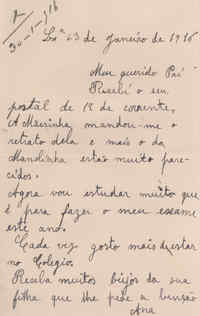 R
30-1-916
Lxª 23 de Janeiro de 1916
Meu querido Pai
Recebi o seu
postal de 12 do corrente,
A Mariska mandou-me o
retrato dela e mais o da
Manolinha estão muito pare-
cidos.
Agora vou estudar muito que
é para fazer o meu exame
este ano.
Cada vez gosto mais d'estar
no Colegio.
Receba muitos beijos da sua
filha que lhe pede a benção
Ana